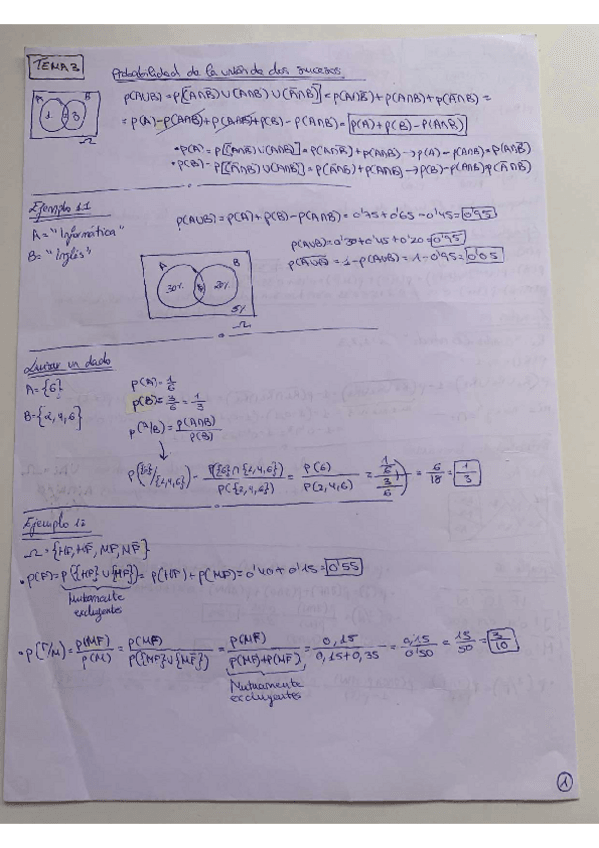 TEMA 3
Probabilidad de la unión de dos sucesos
A B
1 2 3
Ω
p(A∪B) = p[(A∩B̄)∪(A∩B)∪(Ā∩B)] = p(A∩B̄)+p(A∩B)+p(Ā∩B) =
= p(A)-p(A∩B)+p(A∩B)+p(B)-p(A∩B) = p(A)+p(B)-p(A∩B)
• p(A) = p[(A∩B̄)∪(A∩B)] = p(A∩B̄)+p(A∩B) → p(A)-p(A∩B) = p(A∩B̄)
• p(B) = p[(Ā∩B)∪(A∩B)] = p(Ā∩B)+p(A∩B) → p(B)-p(A∩B) = p(Ā∩B)
Ejemplo 11
A = "Informática"
B = "Inglés"
p(A∪B) = p(A)+p(B)-p(A∩B) = 0'75+0'65-0'45 = 0'95
p(A∪B) = 0'30+0'45+0'20 = 0'95
p(A∪B) = 1-p(A∪B) = 1-0'95 = 0'05
A B
30% 20%
5%
Ω
Lanzar un dado
A = {6}
B = {2,4,6}
p(A) = 1/6
p(B) = 3/6 = 1/3
p(A/B) = p(A∩B)/p(B)
p({6}/{2,4,6}) = p({6}∩{2,4,6})/p({2,4,6}) = p(6)/p(2,4,6) = (1/6)/(3/6) = 6/18 = 1/3
Ejemplo 12
Ω = {HF, HF̄, MF, MF̄}
• p(F) = p({HF}∪{MF}) = p(HF)+p(MF) = 0'40+0'15 = 0'55
Mutuamente
excluyentes
• p(F/M) = p(MF)/p(M) = p(MF)/p({MF}∪{MF̄}) = p(MF)/(p(MF)+p(MF̄)) = 0,15/(0,15+0,35) = 0,15/0'50 = 15/50 = 3/10
Mutuamente
excluyentes
1